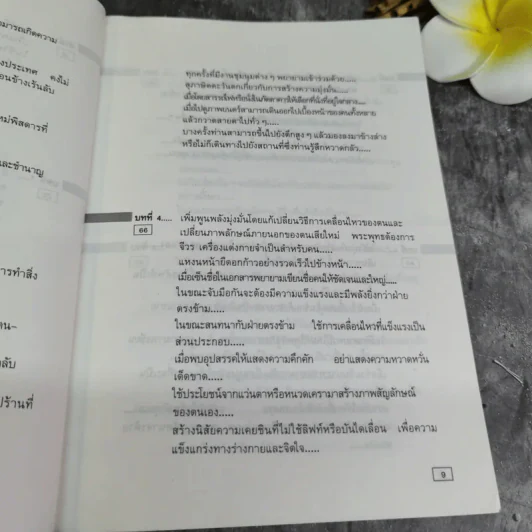 ามารถเกิดความ
งประเทศ คงไม่
อนข้างเร้นลับ
หม่พิสดารที่
และชำนาญ
การทำสิ่ง
ตน-
ลับ
ปร้านที่
ทุกครั้งที่มีงานชุมนุมต่าง ๆ พยายามเข้าร่วมด้วย.....
สุภาษิตตะวันตกเกี่ยวกับการสร้างความมุ่งมั่น.....
เมื่อโดยสารรถไฟหรือนั่งในภัตตาคารให้เลือกที่นั่งที่อยู่ใจกลาง.....
เมื่อไปดูภาพยนตร์สามารถเดินออกไปเบื้องหน้าของคนทั้งหลาย
แล้วกวาดสายตาไปทั่ว ๆ.....
บางครั้งท่านสามารถขึ้นไปยังตึกสูง ๆ แล้วมองลงมาข้างล่าง
หรือไม่ก็เดินทางไปยังสถานที่ซึ่งท่านรู้สึกหวาดกลัว.....
บทที่ 4..... เพิ่มพูนพลังมุ่งมั่นโดยแก้เปลี่ยนวิธีการเคลื่อนไหวของตนและ
66 เปลี่ยนภาพลักษณ์ภายนอกของตนเสียใหม่ พระพุทธต้องการ
จีวร เครื่องแต่งกายจำเป็นสำหรับคน.....
แหงนหน้ายืดอกก้าวอย่างรวดเร็วไปข้างหน้า.....
เมื่อเซ็นชื่อในเอกสารพยายามเขียนชื่อคนให้ชัดเจนและใหญ่.....
ในขณะจับมือกันจะต้องมีความแข็งแรงและมีพลังยิ่งกว่าฝ่าย
ตรงข้าม.....
ในขณะสนทนากับฝ่ายตรงข้าม ใช้การเคลื่อนไหวที่แข็งแรงเป็น
ส่วนประกอบ.....
เมื่อพบอุปสรรคให้แสดงความคึกคัก อย่าแสดงความหวาดหวั่น
เด็ดขาด.....
ใช้ประโยชน์จากแว่นตาหรือหนวดเครามาสร้างภาพสัญลักษณ์
ของตนเอง.....
สร้างนิสัยความเคยชินที่ไม่ใช้ลิฟท์หรือบันไดเลื่อน เพื่อความ
แข็งแกร่งทางร่างกายและจิตใจ.....
9